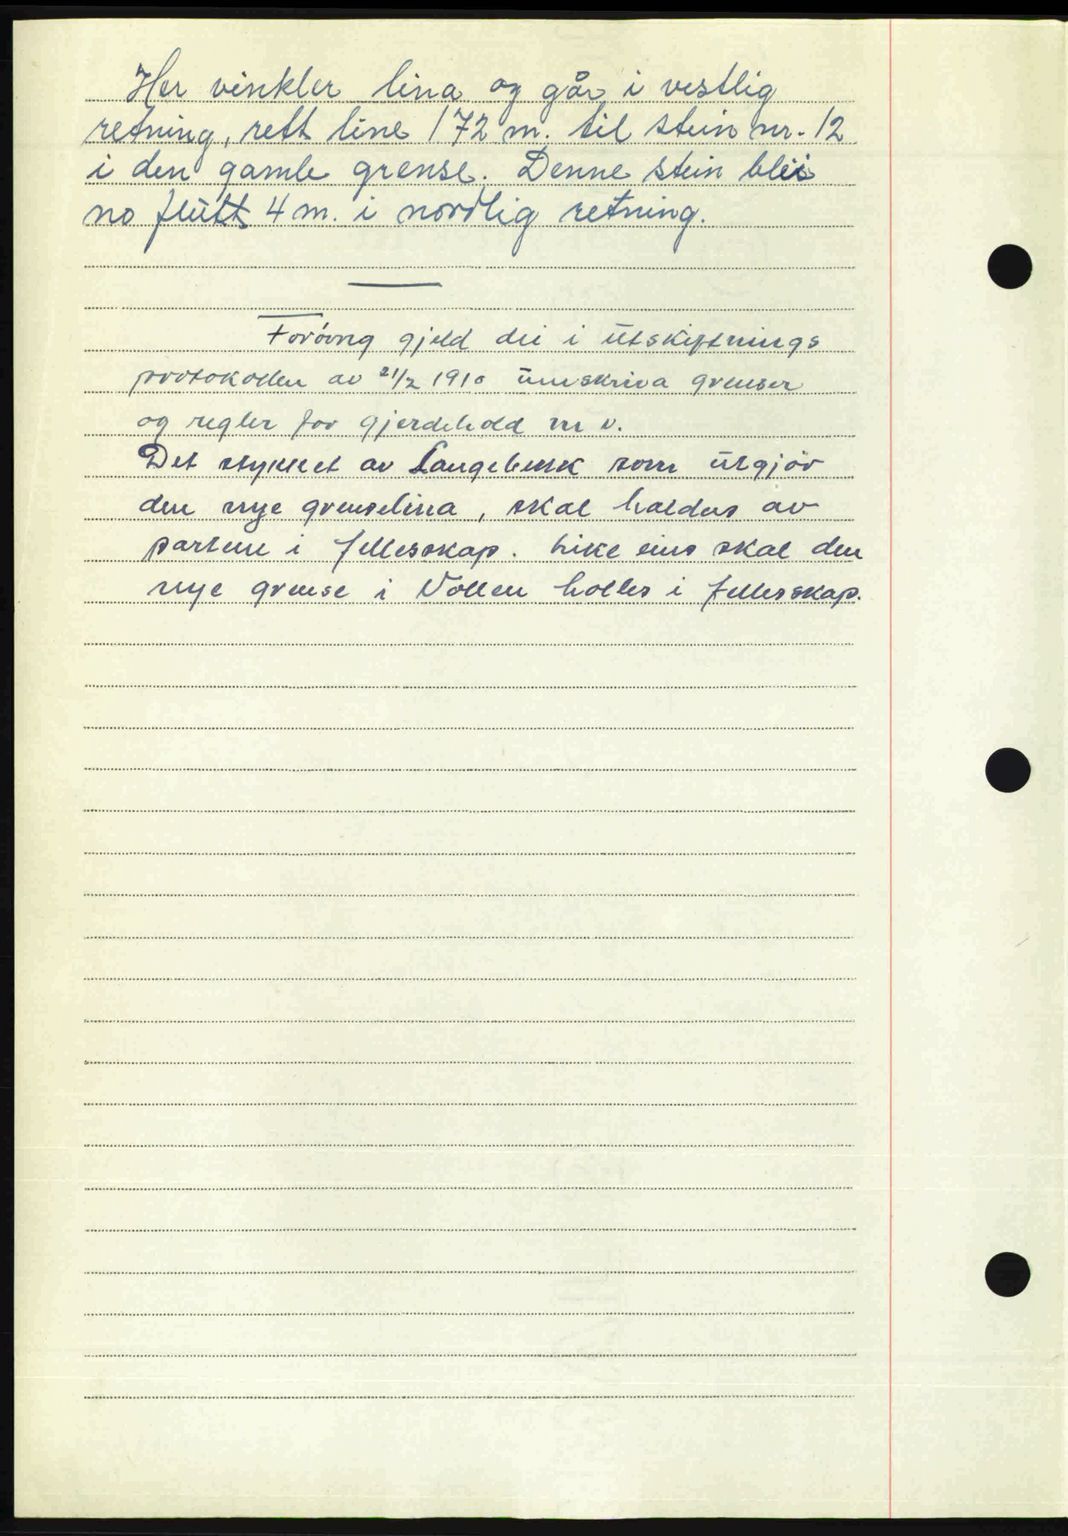 Her vinkler lina og går i vestlig
retning, rett line 172 m. til stein nr. 12
i den gamle grense. Denne stein blei
no flütt 4 m. i nordlig retning.
Forövrig gjeld dei i ütskiftnings
protokollen av 21/2 1910 ümskriva grenser
og regler for gjerdehold m v.
Det stykket av Langebekk som ütgjör
den nye grenselina, skal haldas av
partene i fellesskap. Like eins skal den
nye grense i Vollen holles i fellesskap.